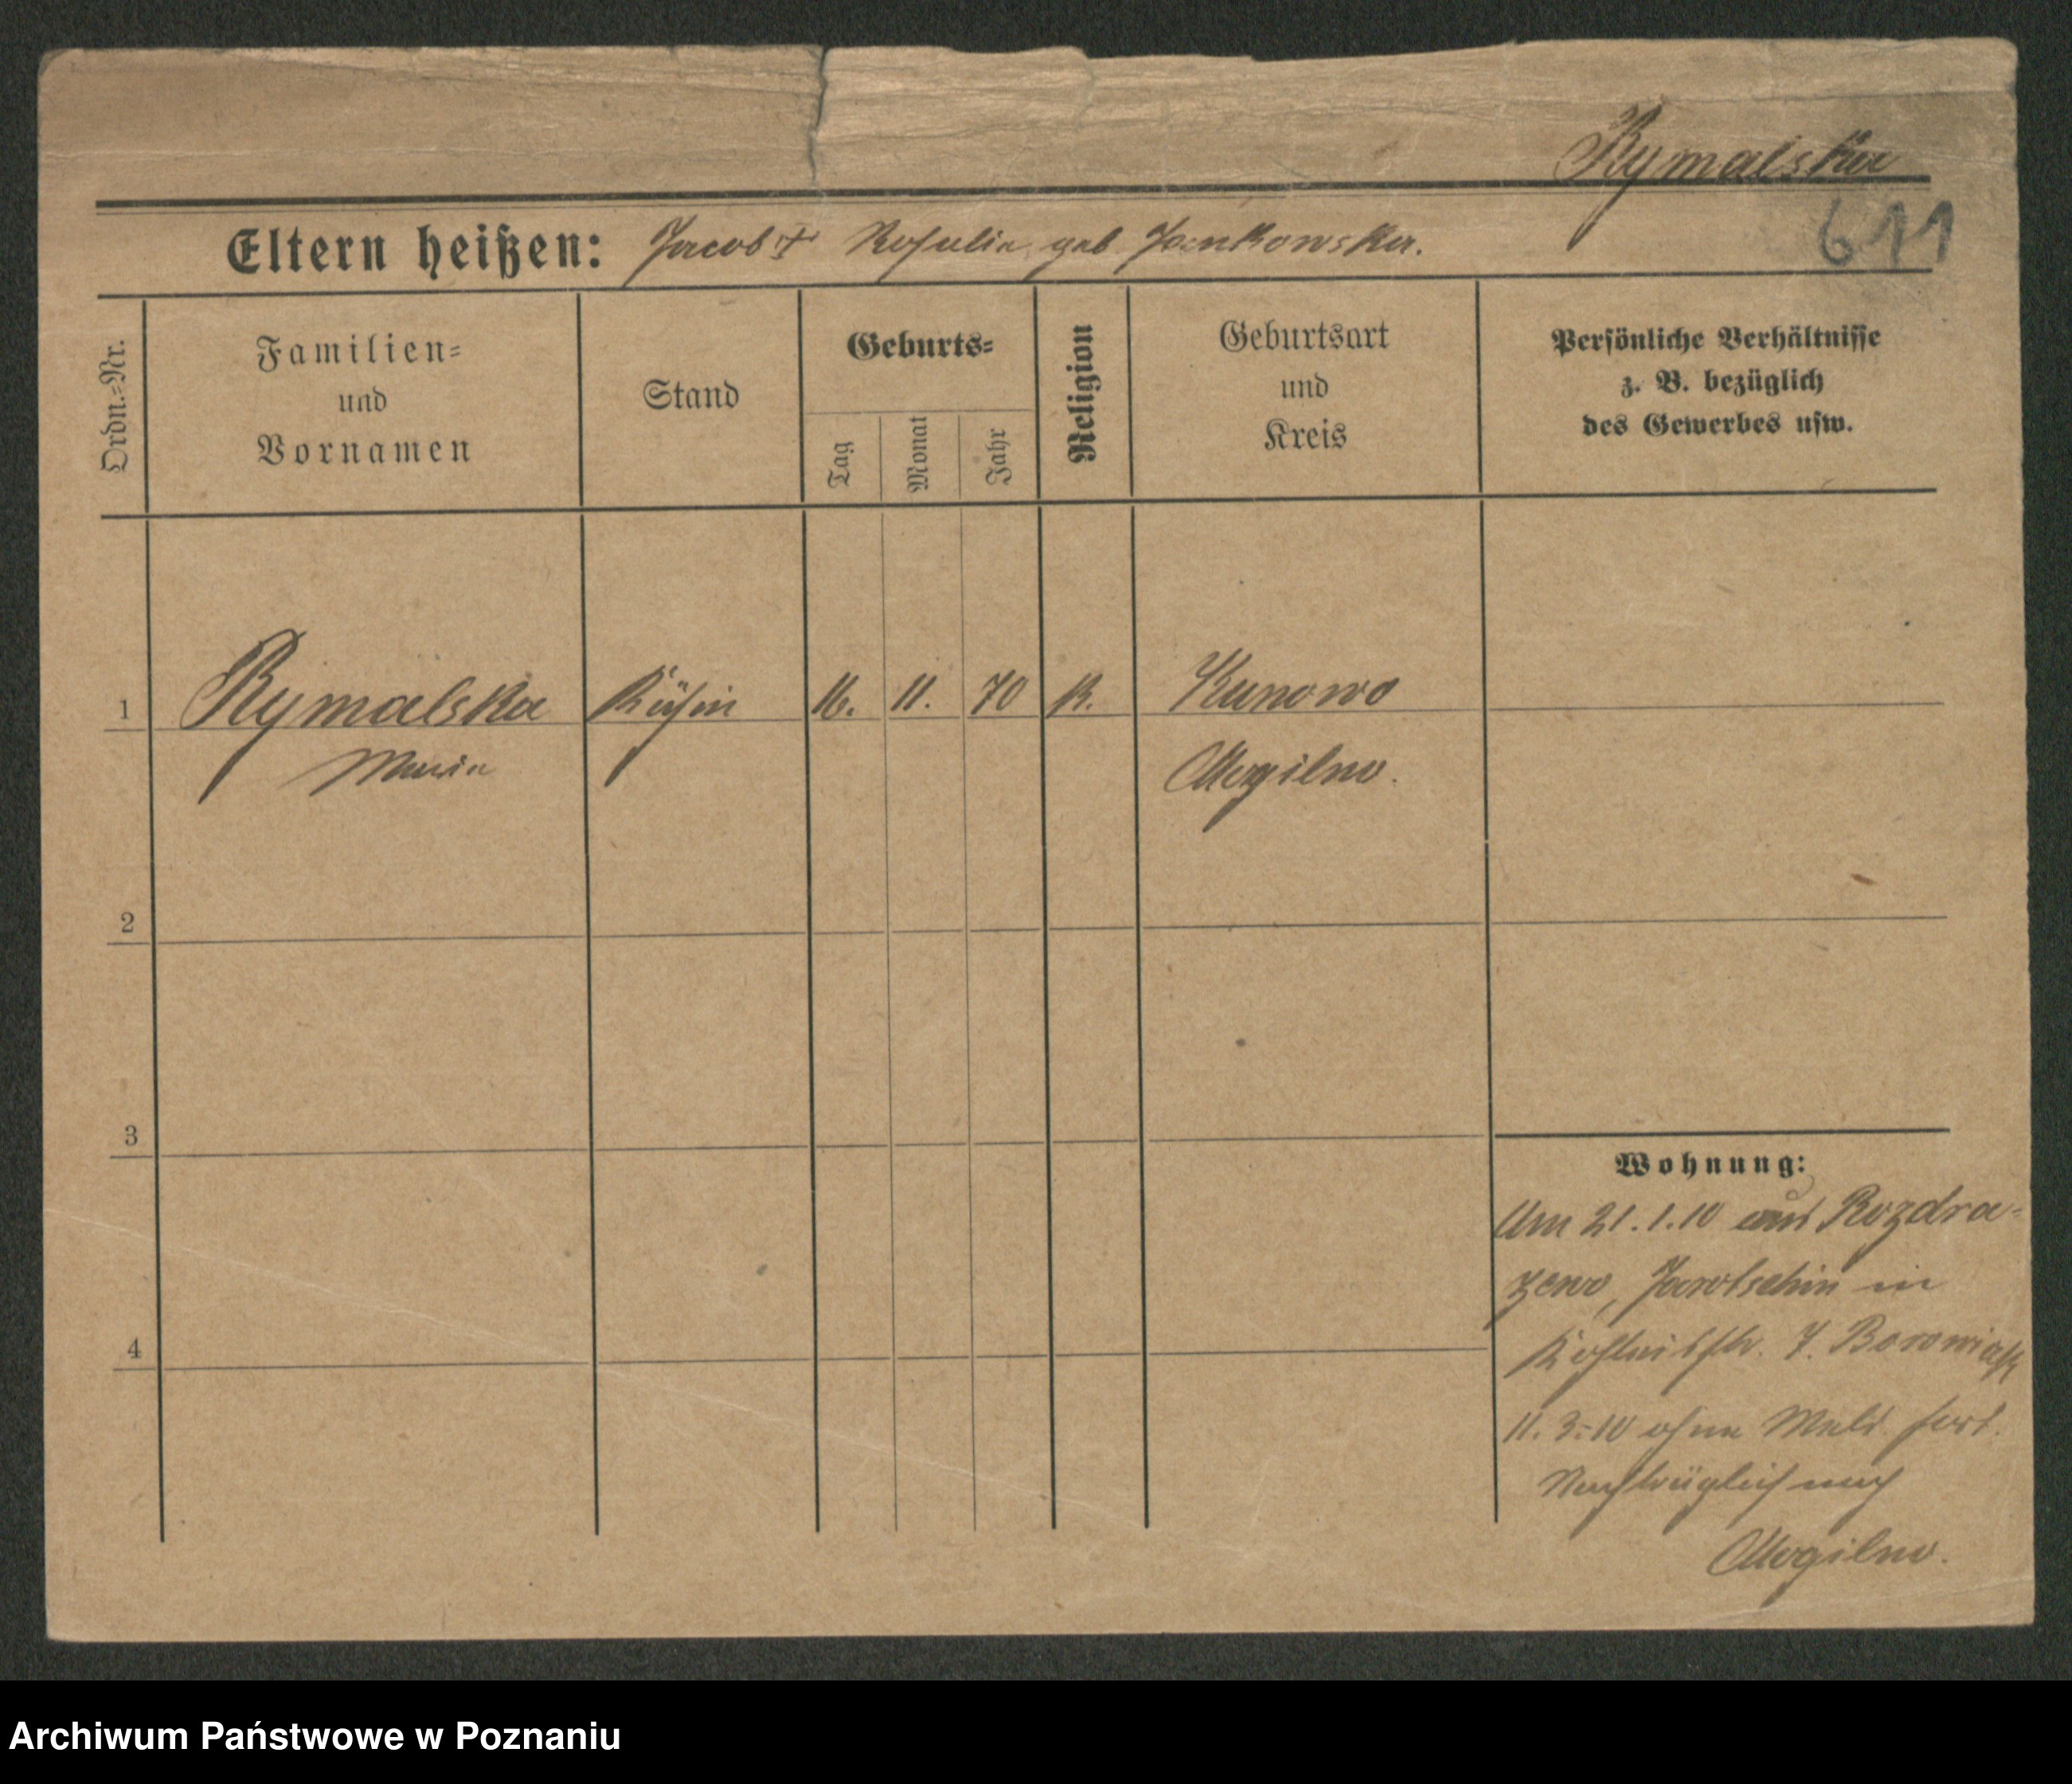 Rymalska
611
Eltern heißen: Jacob † Rosalie geb. Jankowska.
Ordn.=Nr.
Familien=
und
Vornamen
Stand
Geburts=
Tag
Monat
Jahr
Religion
Geburtsort
und
Kreis
Persönliche Verhältnisse
z. B. bezüglich
des Gewerbes usw.
1 Rymalska Köchin 16. 11. 70 K. Kunowo
Maria Mogilno.
2
3
4
Wohnung:
Am 21.1.10 aus Rozdra-
zewo, Jarotschin in
7. Borowiak
11.3.10 ohne Meld. fort.
Nachträglich nach
Mogilno.
Archiwum Państwowe w Poznaniu